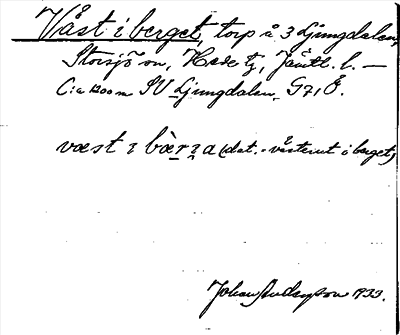 Våst i berget, torp å 3 Ljungdalen,
Storsjö sn, Hede tg, Jämtl. l. —
C:a 1200 m SV Ljungdalen, G71, Ö.
væst ɪ bæ̀rɪa (dat. - västerut i berget)
Johan Anderson 1933.